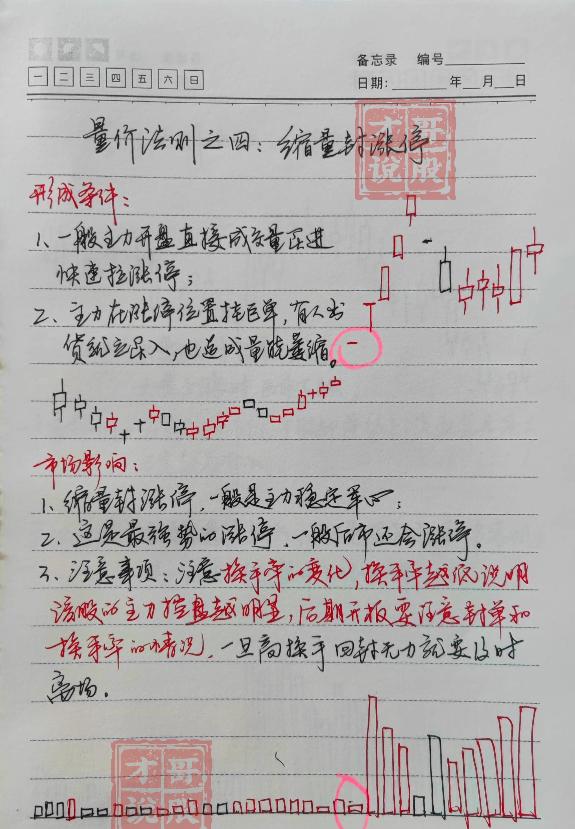 备忘录 编号
一 二 三 四 五 六 日
日期: 年 月 日
量价法则之四：缩量封涨停
才哥说股
形成条件：
1、一般主力开盘直接成交量跃进
快速拉涨停；
2、主力在涨停位置挂巨单，有人出
货就立足入，也造成量能萎缩。
市场影响：
1、缩量封涨停，一般是主力稳定军心；
2、这是最强势的涨停，一般后市还会涨停。
3、注意事项：注意换手率的变化，换手率越低说明
该股的主力控盘越明显，后期开板要注意封单和
换手率的情况，一旦高换手回封无力就要及时
离场。
才哥说股